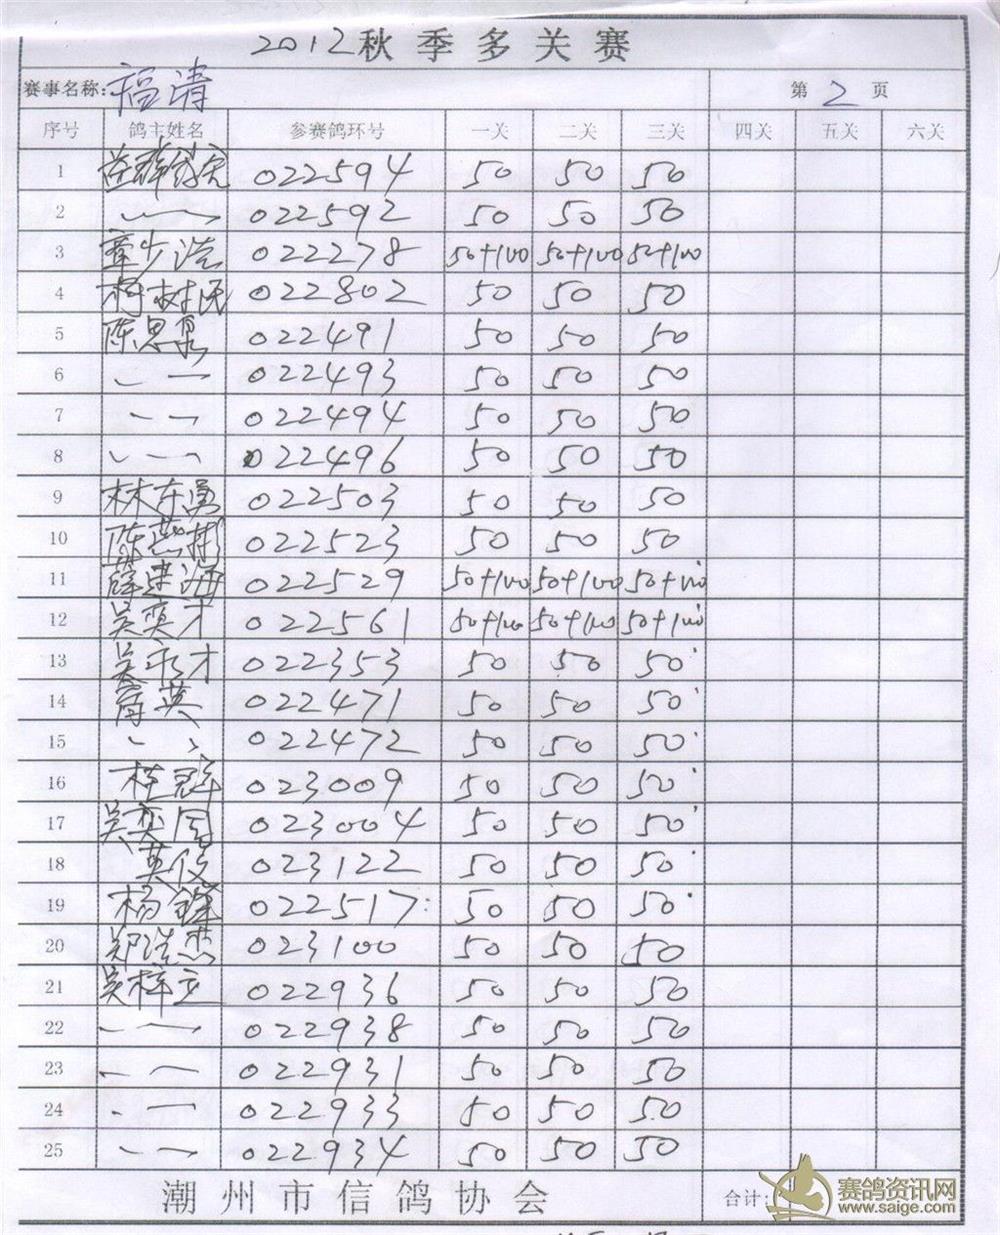 2012秋季多关赛
赛事名称: 福清 第 2 页
序号 鸽主姓名 参赛鸽环号 一关 二关 三关 四关 五关 六关
1 022594 50 50 50
2 022592 50 50 50
3 章少浩 022278 50+100 50+100 50+100
4 柯树民 022802 50 50 50
5 陈思 022491 50 50 50
6 022493 50 50 50
7 022494 50 50 50
8 022496 50 50 50
9 林东勇 022503 50 50 50
10 陈燕彬 022523 50 50 50
11 薛建海 022529 50+100 50+100 50+100
12 吴奕才 022561 50+100 50+100 50+100
13 吴才 022353 50 50 50
14 英 022471 50 50 50
15 022472 50 50 50
16 023009 50 50 50
17 吴 023004 50 50 50
18 英俊 023122 50 50 50
19 杨锋 022517 50 50 50
20 郑浩杰 023100 50 50 50
21 吴梓 022936 50 50 50
22 022938 50 50 50
23 022931 50 50 50
24 022933 50 50 50
25 022934 50 50 50
潮州市信鸽协会 合计:
赛鸽资讯网
www.saige.com